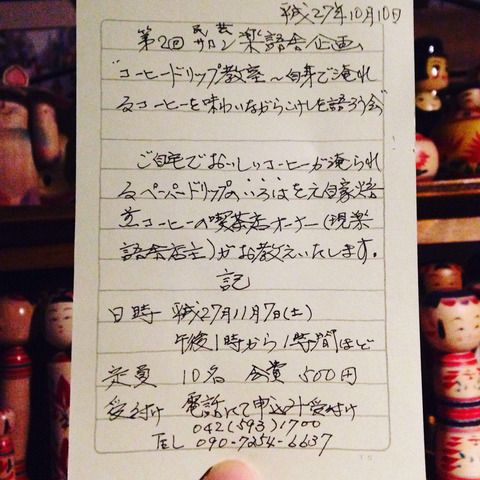 平成27年10月10日
第2回 民芸サロン楽語舎企画
"コーヒードリップ教室〜自身で淹れ
るコーヒーを味わいながらこけしを語ろう会"
ご自宅でおいしいコーヒーが淹れられ
るペーパードリップのいろはを元自家焙
煎コーヒーの喫茶店オーナー(現楽
語舎店主)がお教えいたします。
記
日時 平成27年11月7日(土)
午後1時から1時間ほど
定員 10名 会費 500円
受付け 電話にて申込み受付け
042(593)1700
TEL 090-7254-6637